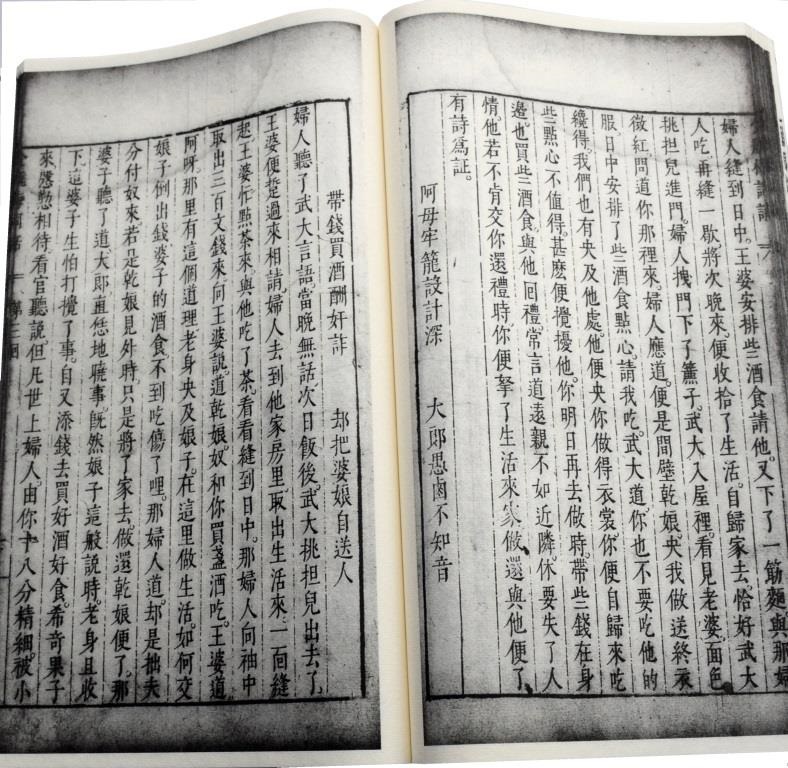 婦人縫到日中。王婆安排些酒食請他。又下了一筯麵與那婦
人吃。再縫一歇。將次晚來。便收拾了生活。自歸家去。恰好武大
挑担兒進門。婦人拽門下了簾子。武大入屋裡。看見老婆面色
微紅。問道你那裡來。婦人應道。便是間壁乾娘央我做送終衣
服。日中安排了些酒食點心。請我吃。武大道。你也不要吃他的
纔得。我們也有央及他處。他便央你做得衣裳。你便自歸來吃
些點心。不值得甚麽。便攪擾他。你明日再去做時。帶些錢在身
邊。也買些酒食。與他回禮。常言道遠親不如近隣。休要失了人
情。他若不肯交你還禮時。你便拏了生活來家做還與他便了。
有詩爲証。
阿毋牢籠設計深 大郎愚鹵不知音
帶錢買酒酬奸詐 却把婆娘自送人
婦人聽了武大言語。當晚無話。次日飯後。武大挑担兒出去了。
王婆便踅過來相請。婦人去到他家房里。取出生活來。一面縫
起。王婆忙點茶來。與他吃了茶。看看縫到日中。那婦人向袖中
取出三百文錢來。向王婆說道。乾娘奴和你買盞酒吃。王婆道
阿呀。那里有這個道理。老身央及娘子。在這里做生活。如何交
娘子倒出錢。婆子的酒食。不到吃傷了哩。那婦人道。却是拙夫
分付奴來。若是乾娘見外時。只是將了家去。做還乾娘便了。那
婆子聽了道。大郎直恁地曉事。旣然娘子這般說時。老身且收
下。這婆子生怕打攪了事。自又添錢去買好酒好食。希奇果子
來慇懃相待。看官聽說。但凡世上婦人。由你十八分精細。被小
第三囬